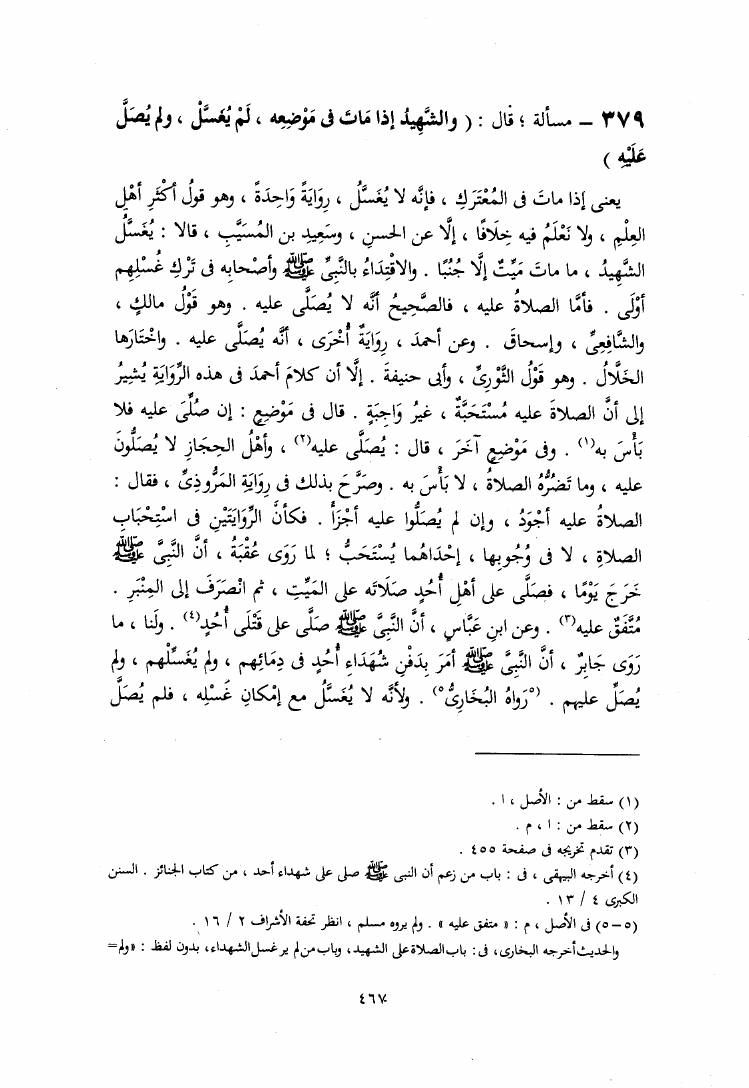 ٣٧٩ – مسألة ؛ قال : ( والشَّهِيدُ إذا مَاتَ فى مَوْضِعِه ، لَمْ يُغَسَّلْ ، ولم يُصَلَّ
عَلَيْهِ )
يعنى إذا ماتَ فى المُعْتَرَكِ ، فإنَّه لا يُغَسَّلُ ، رِوَايَةً وَاحِدَةً ، وهو قولُ أكْثَرِ أهْلِ
العِلْمِ ، ولا نَعْلَمُ فيه خِلَافًا ، إلَّا عن الحسنِ ، وسَعِيدِ بن المُسَيَّبِ ، قالا : يُغَسَّلُ
الشَّهِيدُ ، ما ماتَ مَيِّتٌ إلَّا جُنُبًا . والاقْتِدَاءُ بالنَّبِىِّ ﷺ وأصْحابِه فى تَرْكِ غُسْلِهم
أوْلَى . فأمَّا الصلاةُ عليه ، فالصَّحِيحُ أنَّه لا يُصَلَّى عليه . وهو قَوْلُ مالكٍ ،
والشَّافِعِىِّ ، وإسحاقَ . وعن أحمدَ ، رِوَايَةٌ أُخْرَى ، أنَّه يُصَلَّى عليه . واخْتَارَها
الخَلَّالُ . وهو قَوْلُ الثَّوْرِىِّ ، وأبى حنيفةَ . إلَّا أن كلامَ أحمدَ فى هذه الرِّوَايَةِ يُشِيرُ
إلى أنَّ الصلاةَ عليه مُسْتَحَبَّةٌ ، غيرُ وَاجِبَةٍ . قال فى مَوْضِعٍ : إن صُلِّىَ عليه فلا
بَأْسَ به(١) . وفى مَوْضِعٍ آخَرَ ، قال : يُصَلَّى عليه(٢) ، وأهْلُ الحِجَازِ لا يُصَلُّونَ
عليه ، وما تَضُرُّهُ الصلاةُ ، لا بَأْسَ به . وصَرَّحَ بذلك فى رِوَايَةِ المَرُّوذِىِّ ، فقال :
الصلاةُ عليه أجْوَدُ ، وإن لم يُصَلُّوا عليه أجْزَأَ . فكأنَّ الرِّوَايَتَيْنِ فى اسْتِحْبَابِ
الصلاةِ ، لا فى وُجُوبِها ، إحْدَاهُما يُسْتَحَبُّ ؛ لما رَوَى عُقْبَةُ ، أنَّ النَّبِىَّ ﷺ
خَرَجَ يَوْمًا ، فصَلَّى على أهْلِ أُحُدٍ صَلَاتَه على المَيِّتِ ، ثم انْصَرَفَ إلى المِنْبَرِ .
مُتَّفَقٌ عليه(٣) . وعن ابنِ عَبَّاسٍ ، أنَّ النَّبِىَّ ﷺ صلَّى على قَتْلَى أُحُدٍ(٤) . ولَنا ، ما
رَوَى جَابِرٌ ، أنَّ النَّبِىَّ ﷺ أمَرَ بِدَفْنِ شُهَدَاءِ أُحُدٍ فى دِمَائِهم ، ولم يُغَسِّلْهم ، ولم
يُصَلِّ عليهم . (٥رَواهُ البُخَارِىُّ٥) . ولأنَّه لا يُغَسَّلُ مع إمْكانِ غَسْلِه ، فلم يُصَلَّ
(١) سقط من : الأصل ، ا .
(٢) سقط من : ا ، م .
(٣) تقدم تخريجه فى صفحة ٤٥٥ .
(٤) أخرجه البيهقى ، فى : باب من زعم أن النبى ﷺ صلى على شهداء أحد ، من كتاب الجنائز . السنن
الكبرى ٤ / ١٣ .
(٥-٥) فى الأصل ، م : « متفق عليه » . ولم يروه مسلم ، انظر تحفة الأشراف ٢ / ١٦ .
والحديث أخرجه البخارى ، فى : باب الصلاة على الشهيد ، وباب من لم ير غسل الشهداء ، بدون لفظ : « ولم =
٤٦٧